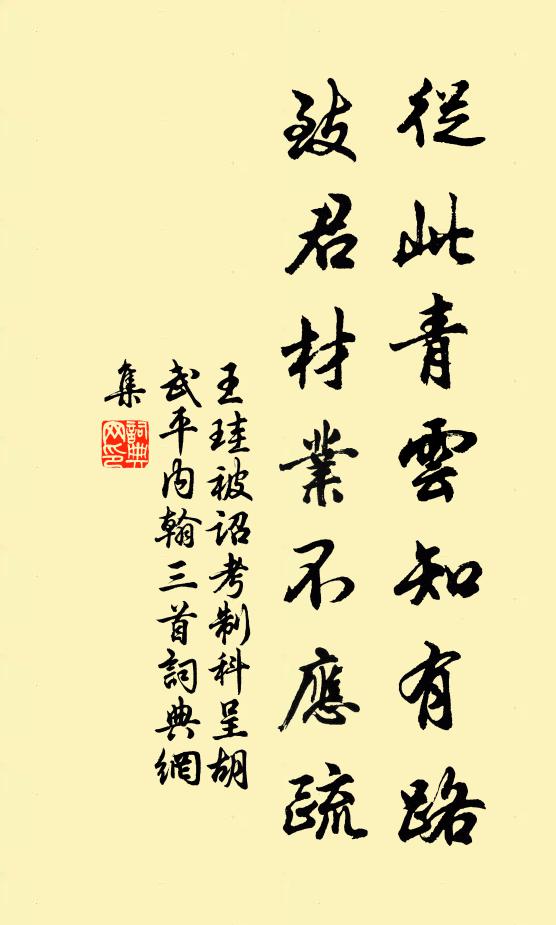 從此青雲知有路
致君材業不應疏
王珪被詔考制科呈胡
武平內翰三首詞典網
集
詞典網印